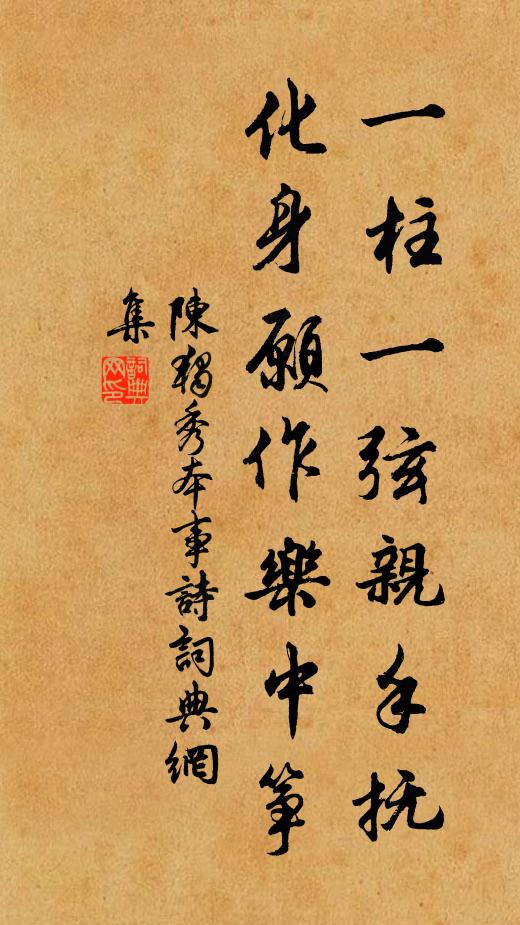 一柱一弦親手抚
化身願作樂中筝
陳獨秀本事詩詞典網
集
詞典
网印